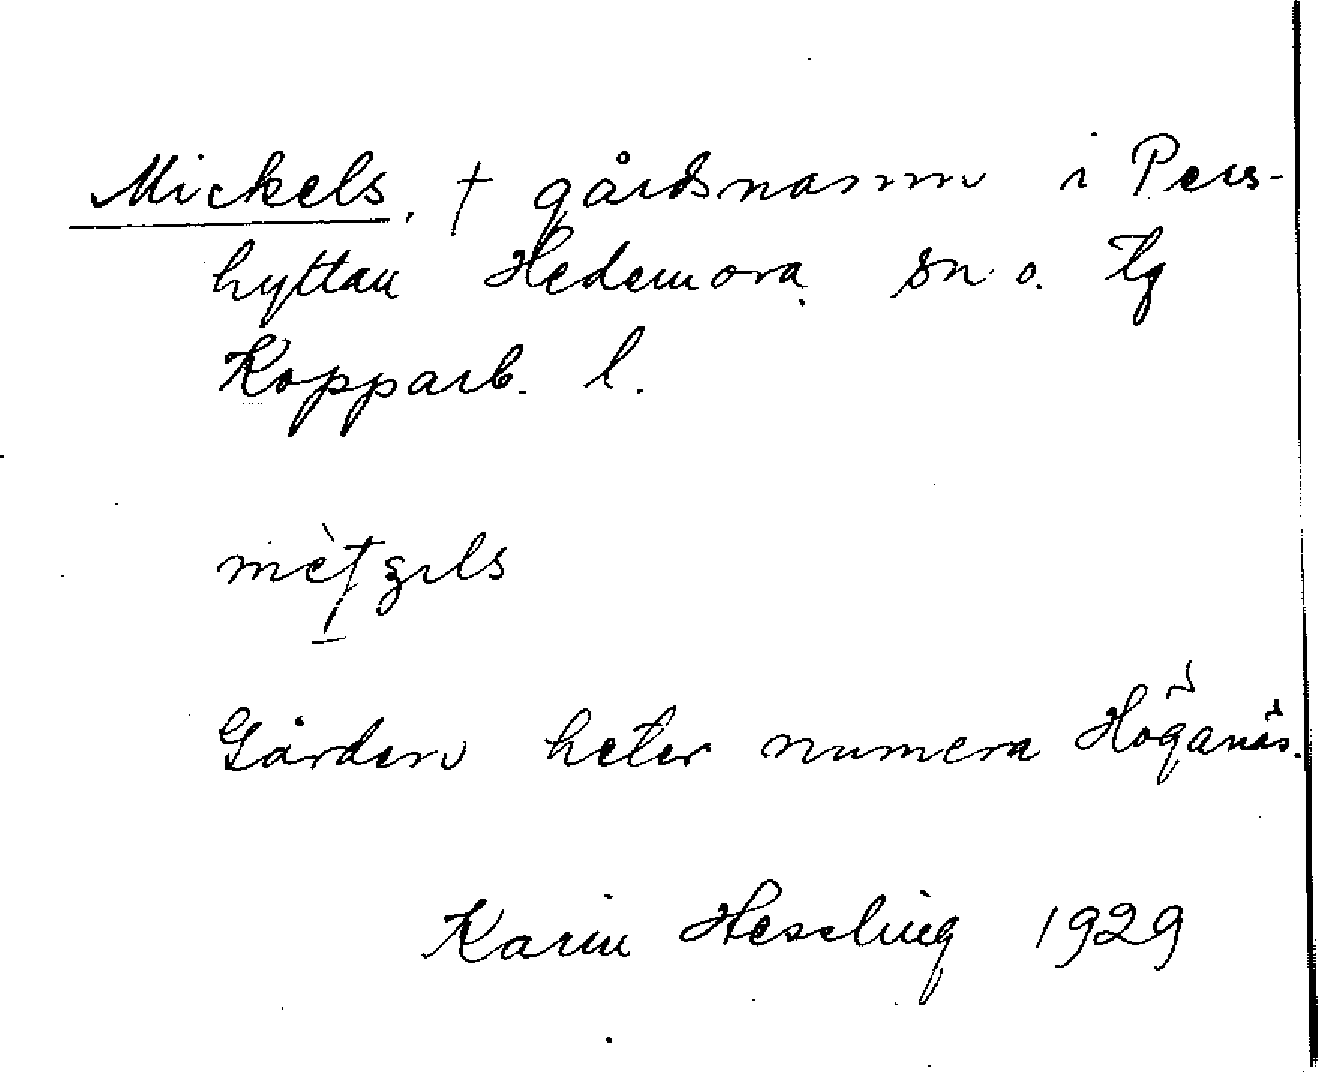 Mickels, † gårdsnamn i Pers-
hyttan Hedemora sn o. tg
Kopparb. l.
Gården heter numera Höganäs.
Karin Hesseling 1929